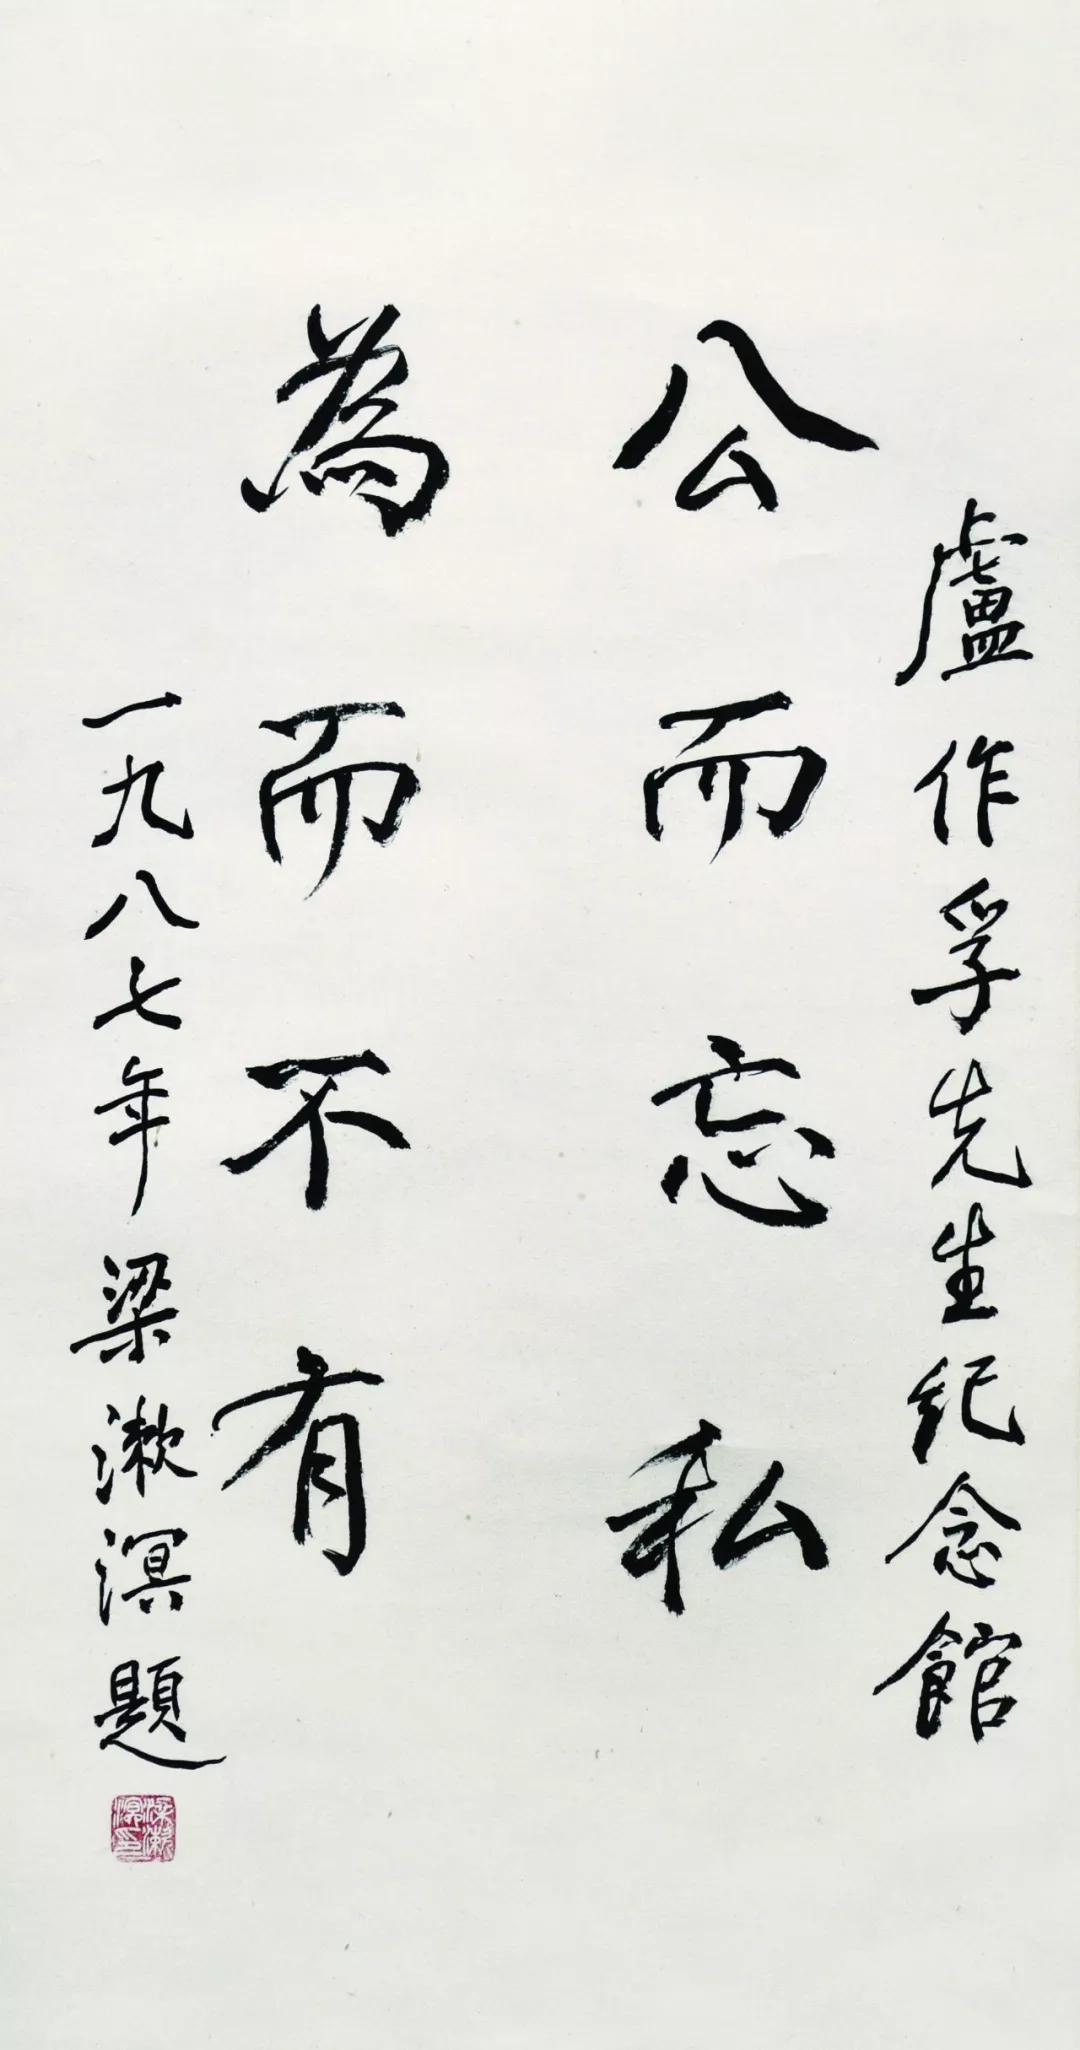 盧作孚先生纪念館
公而忘私
為而不有
一九八七年梁漱溟題
梁漱溟印